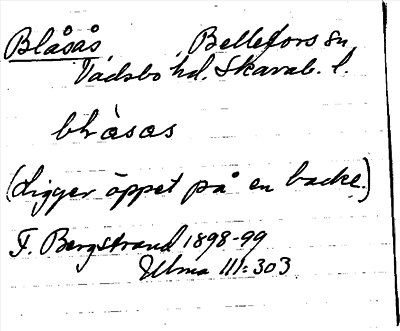 Blåsås, Bellefors sn
Vadsbo hd. Skarab. l.
blåsas
(Ligger öppet på en backe.)
F. Bergstrand 1898-99
Ulma 111:303